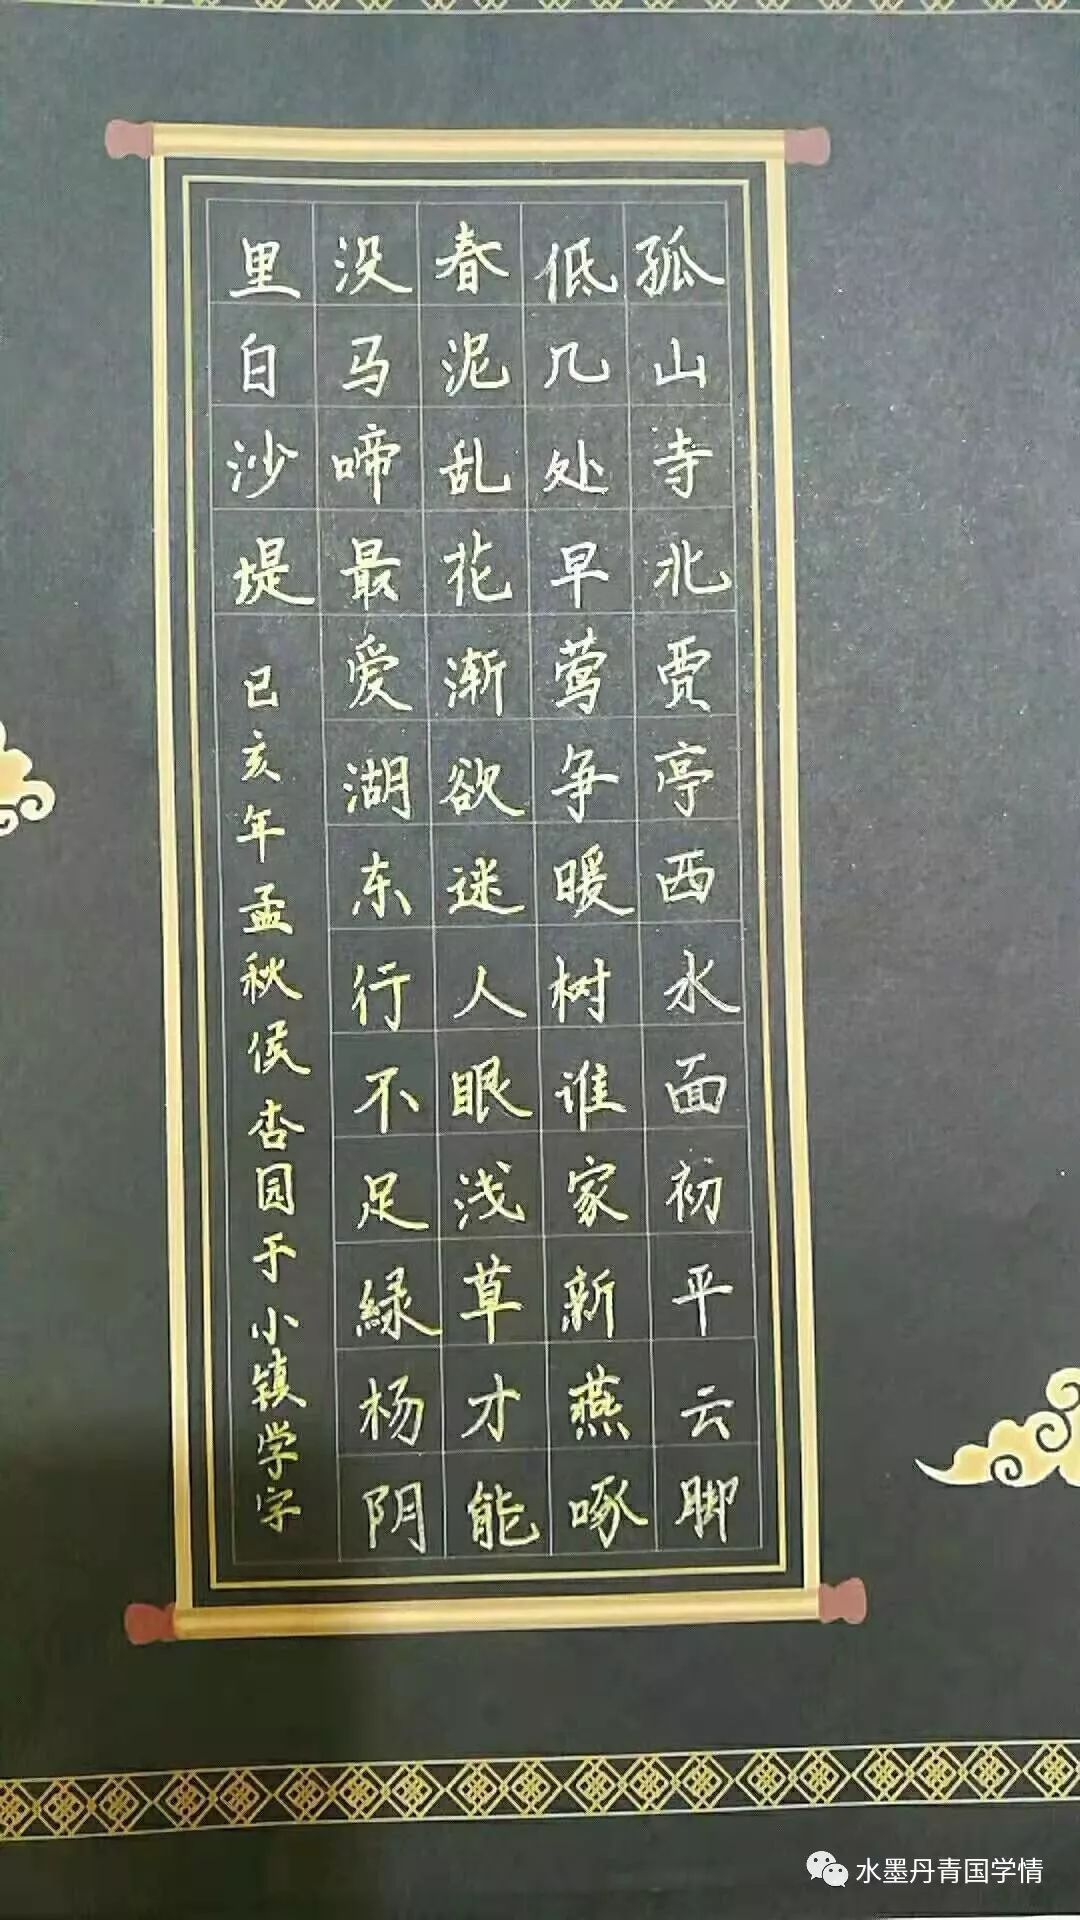 孤山寺北贾亭西水面初平云脚
低几处早莺争暖树谁家新燕啄
春泥乱花渐欲迷人眼浅草才能
没马啼最爱湖东行不足緑杨阴
里白沙堤
已亥年孟秋侯杏园于小镇学字
水墨丹青国学情